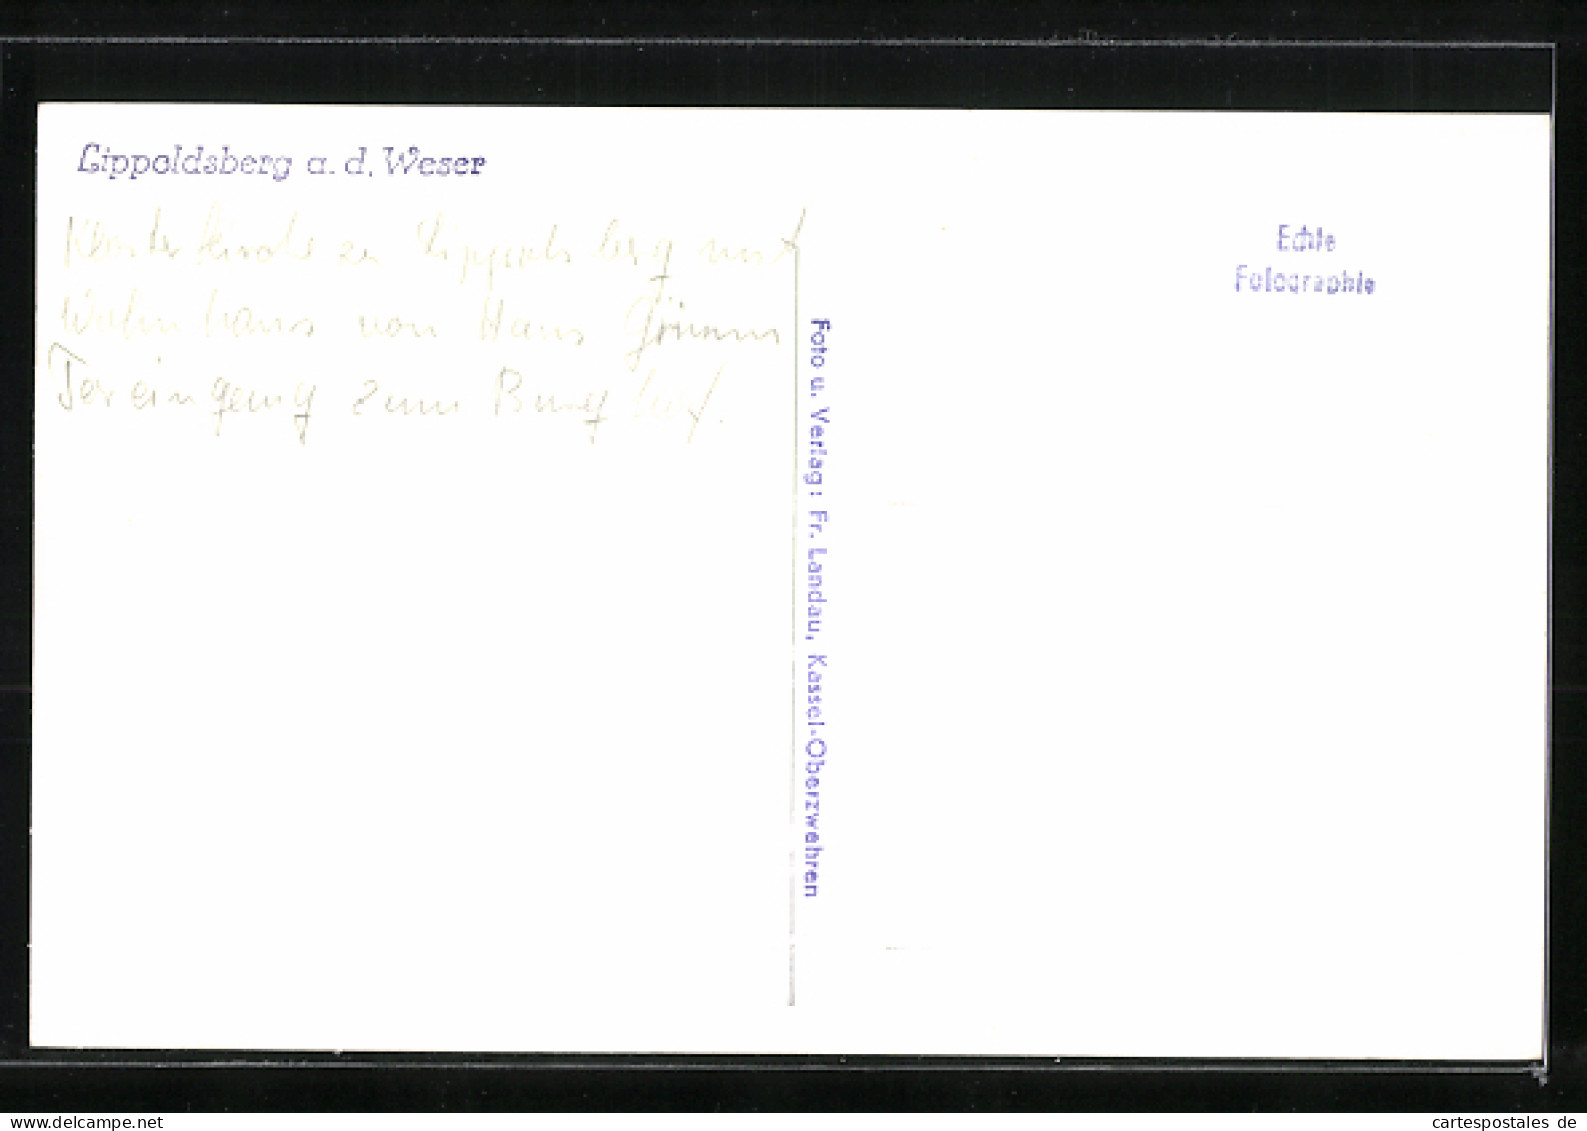 Lippoldsberg a. d. Weser
Klosterkirche zu Lippoldsberg mit
Wohnhaus von Hans Grimm
Toreingang zum Burghof.
Echte
Fotographie
Foto u. Verlag: Fr. Landau, Kassel-Oberzwehren
cartespostales de